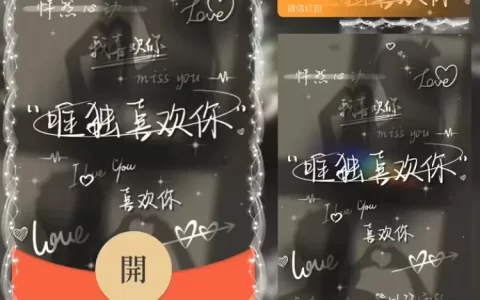 怦然心动
Love
我喜欢你
miss you
“唯独喜欢你”
I Love You
喜欢你
Love
開
微信红包
怦然心动
Love
我喜欢你
miss you
“唯独喜欢你”
I Love You
喜欢你
Love